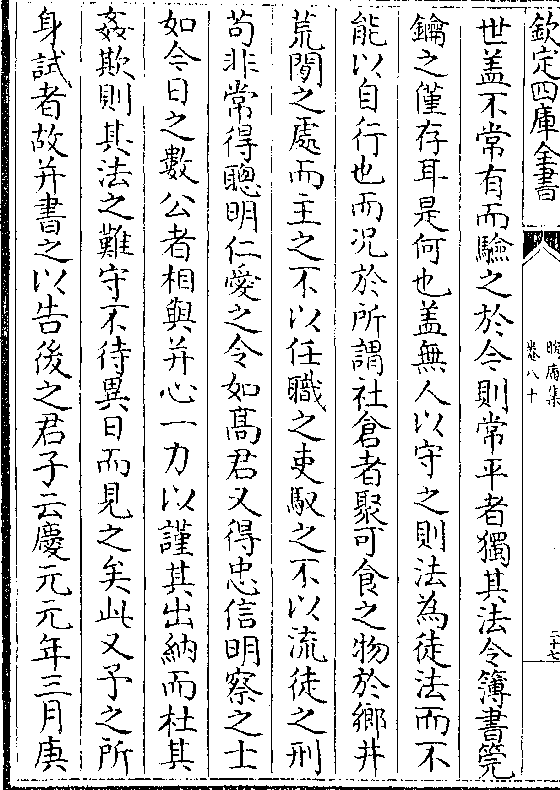 欽定四庫全書
晦庵集
卷八十
二十七
世盖不常有而驗之於今則常平者獨其法令簿書筦
鑰之僅存耳是何也盖無人以守之則法為徒法而不
能以自行也而况於所謂社倉者聚可食之物於鄉井
荒閒之處而主之不以任職之吏馭之不以流徒之刑
苟非常得聰明仁愛之令如髙君又得忠信明察之士
如今日之數公者相與并心一力以謹其出納而杜其
姦欺則其法之難守不待異日而見之矣此又予之所
身試者故并書之以告後之君子云慶元元年三月庚